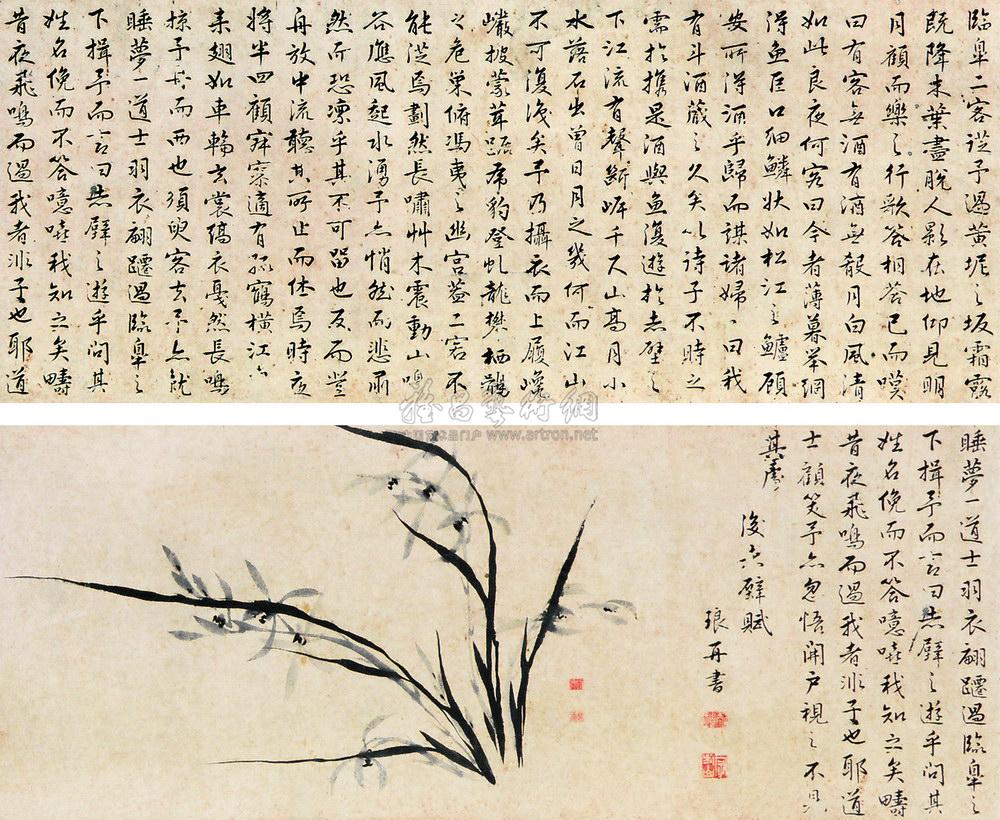 臨皋二客從予過黃埿之坂霜露
既降木葉盡脫人影在地仰見明
月顧而樂之行歌答相答已而嘆
曰有客無酒有酒無殽月白風清
如此良夜何客曰今者薄暮舉網
得魚巨口細鱗狀如松江之鱸顧
安所得酒乎歸而謀諸婦丶曰我
有斗酒藏之久矣以待子不時之
需於携是酒與魚復遊於赤壁之
下江流有聲斷岸千尺山高月小
水落石出曾日月之幾何而江山
不可復識矣予乃攝衣而上履巉
巖披蒙茸踞虎豹登虬龍攀栖鶻
之危巢俯馮夷之幽宮蓋二客不
能從焉劃然長嘯艸木震動山鳴
谷應風起水湧予亦悄然而悲肅
然而恐凜乎其不可留也反而登
舟放中流聽其所止而休焉時夜
將半四顧寂寥適有孤鶴橫江
來翅如車輪玄裳縞衣戛然長鳴
掠予舟而西也須臾客去予亦就
睡夢一道士羽衣翩躚過臨皋之
下揖予而言曰赤壁之遊乎問其
姓名俛而不答噫嘻我知之矣疇
昔夜飛鳴而過我者非子也耶道
雅昌藝術網
www.artron.net
睡夢一道士羽衣翩躚過臨皋之
下揖予而言曰赤壁之遊乎問其
姓名俛而不答噫嘻我知之矣疇
昔夜飛鳴而過我者非子也耶道
士顧笑予亦忽悟開戶視之不見
其處
後赤壁賦
琅冊書